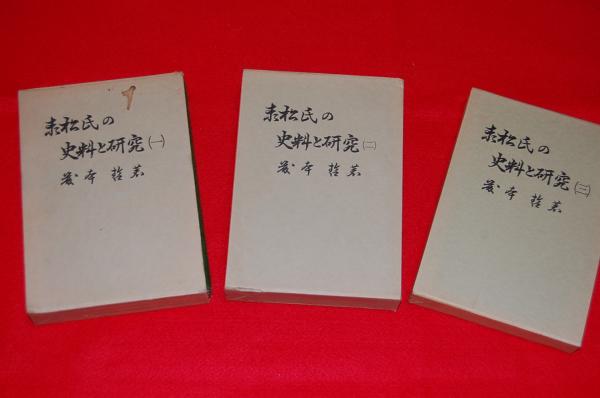 赤松氏の
史料と研究(一)
藤本哲著
赤松氏の
史料と研究(二)
藤本哲著
赤松氏の
史料と研究(三)
藤本哲著